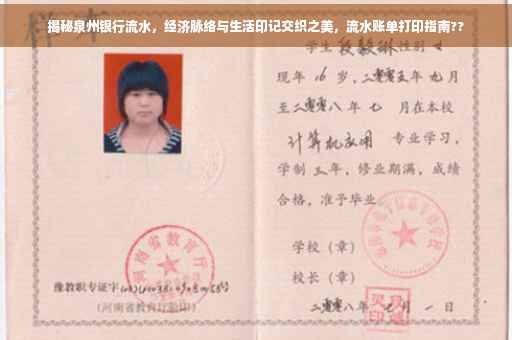 揭秘泉州银行流水，经济脉络与生活印记交织之美，流水账单打印指南??
学生段毅琳性别女
现年16岁，二零零五年九月
至二零零八年七月在本校
计算机应用 专业学习，
学制三年，修业期满，成绩
合格，准予毕业。
学校（章）
校长（章）
二零零八年七月一日
河南省教育厅
豫教职专证字
（河南省教育厅验印）